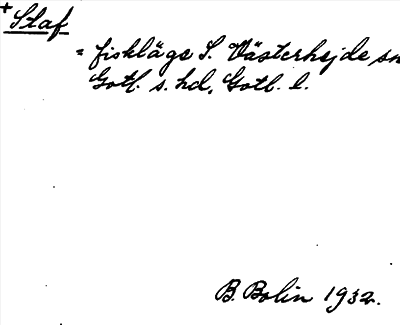 +Slaf
= fiskläge S. Västerhejde sn
Gotl. s. hd, Gotl. l.
B. Bolin 1932.